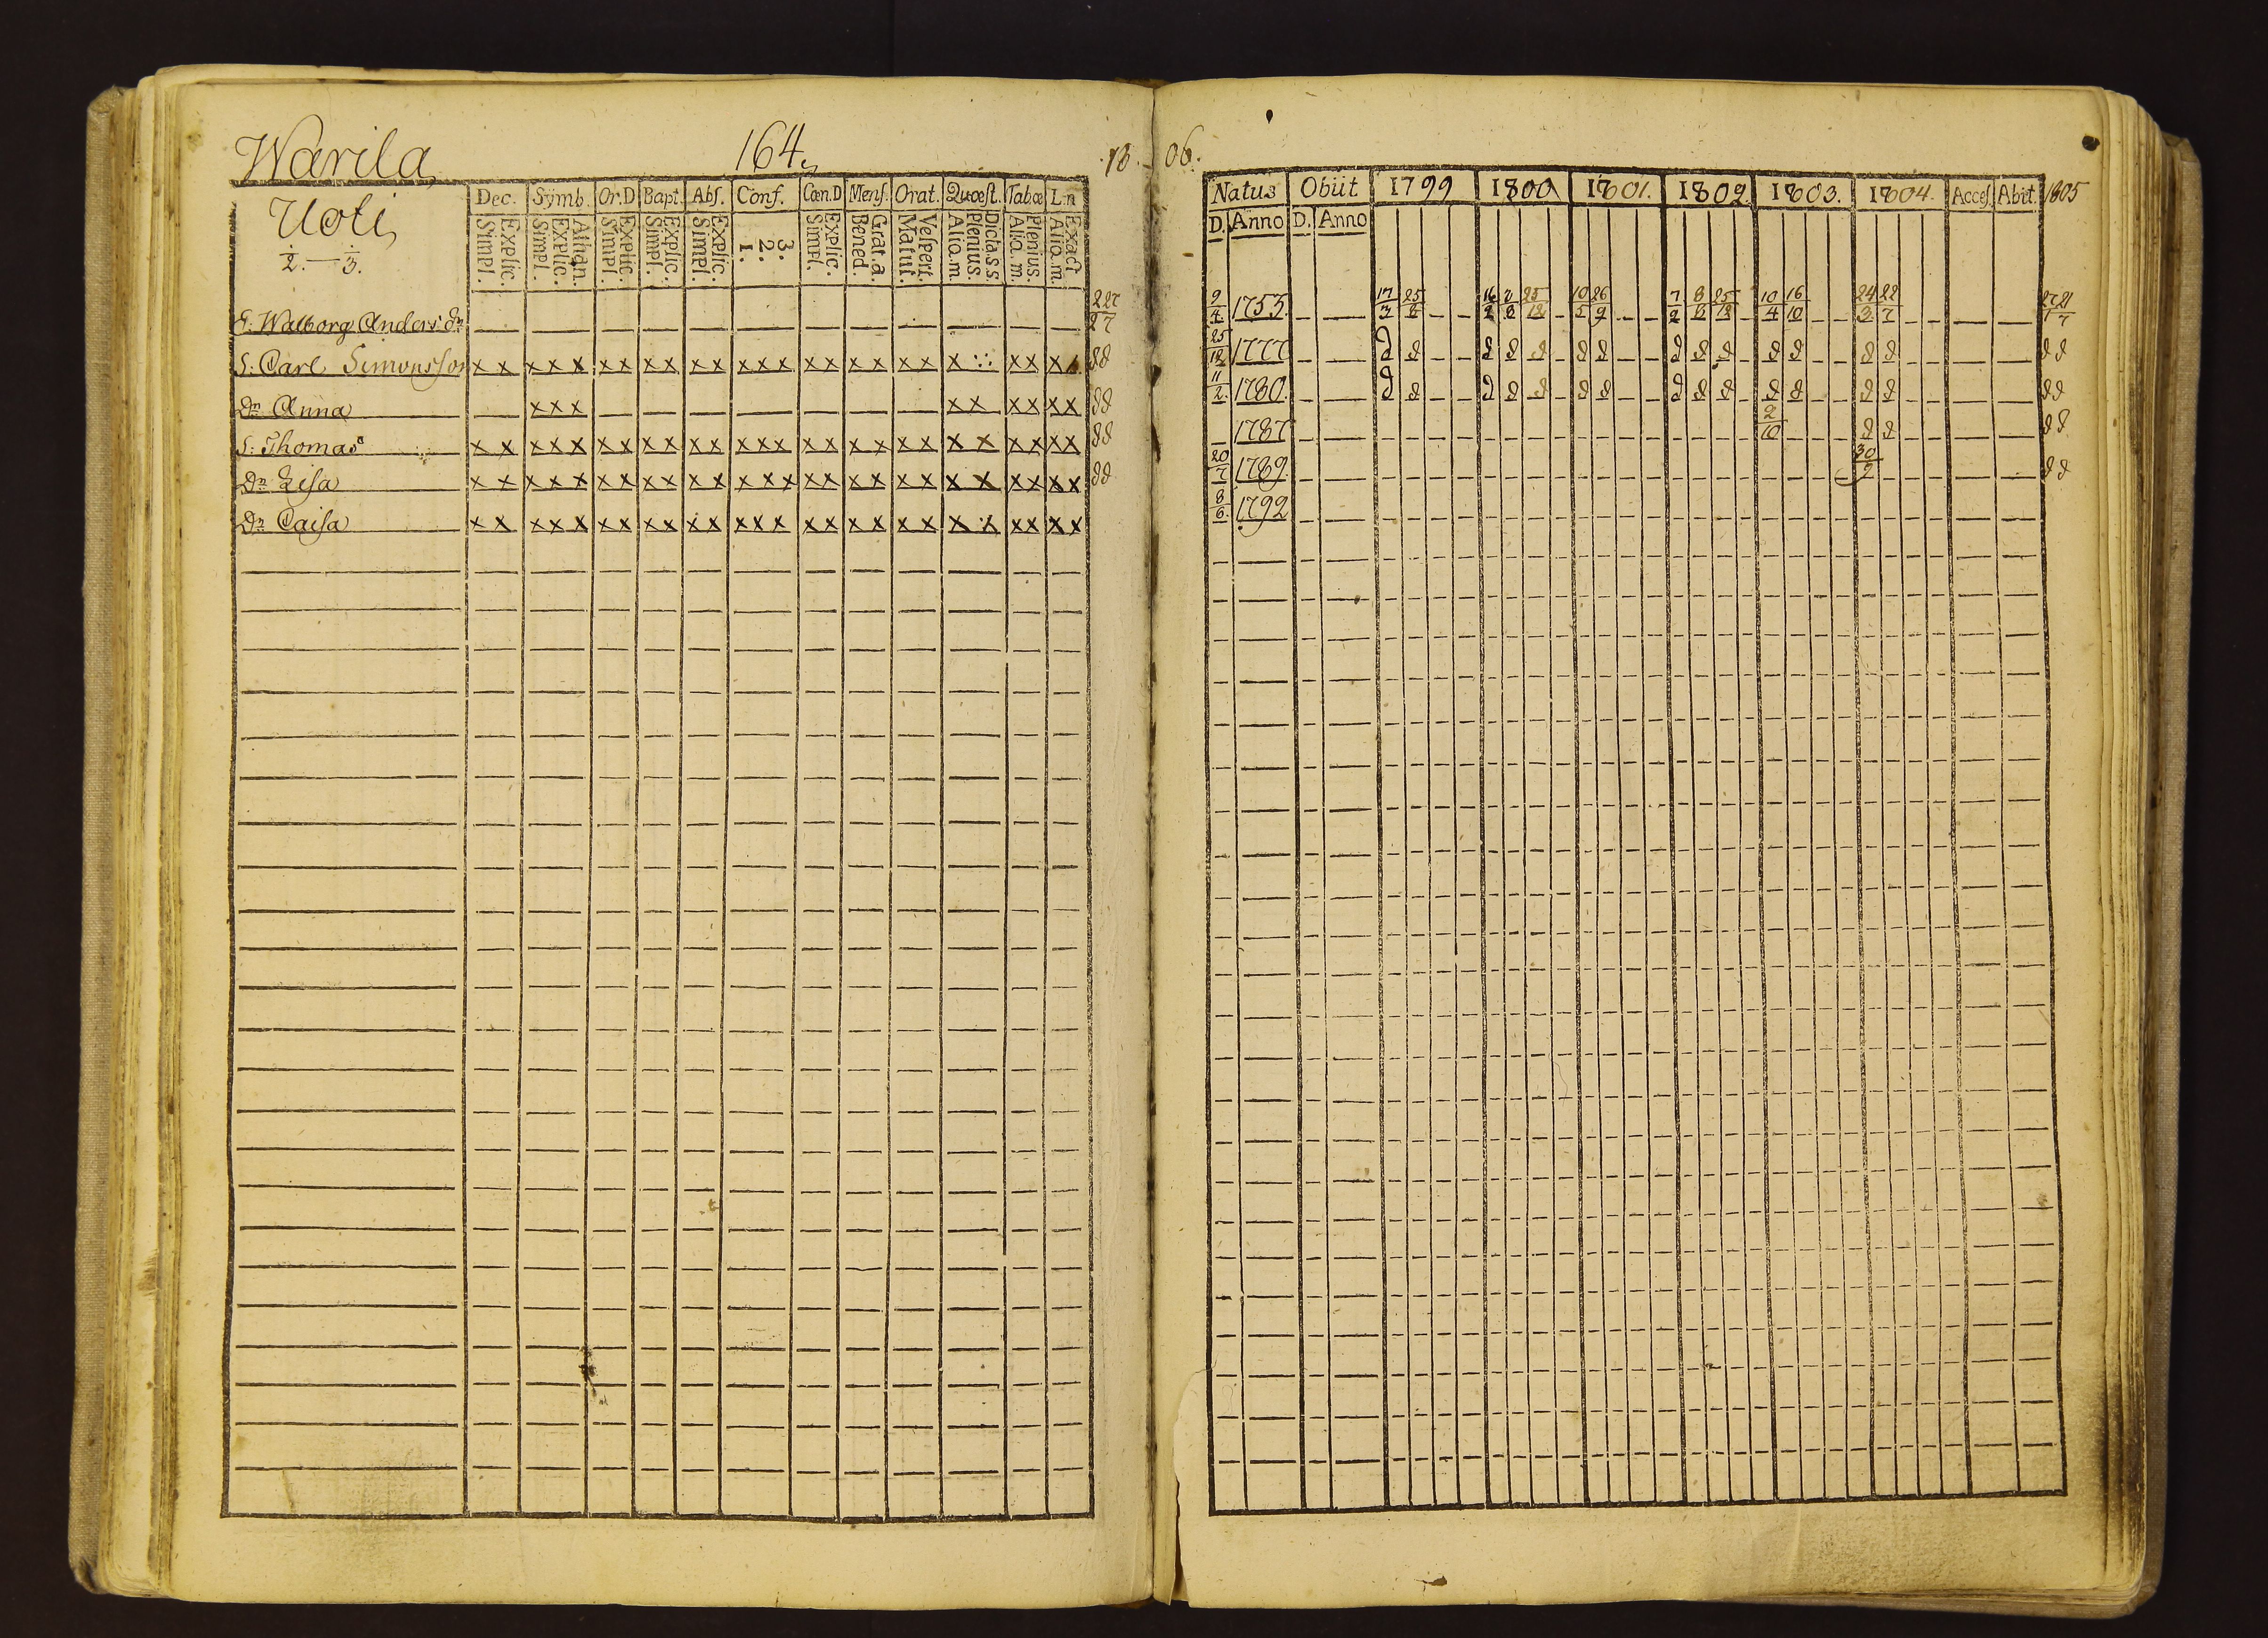 Warila
164.
18
06.
Uoti
1/2. — 1/3.
Dec. Symb. Or.D Bapt. Abs. Conf. Cœn.D Mens. Orat. Quæst. Tabæ L:n
Explic. Simpl. Athan. Explic. Simpl. Explic. Simpl. Explic. Simpl. Explic. Simpl. 3. 2. 1. Explic. Simpl. Grat.a. Bened. Vespert. Matut. Dicta.s.s. Plenius. Aliq.m. Plenius. Aliq.m. Exact Aliq.m.
Natus Obiit 1799 1800 1801. 1802. 1803. 1804. Acces. Abit. 1805
D. Anno D. Anno
E. Walborg Anders dr
S. Carl Simonsson x x x x x x x x x x x x x x x x x x x x x x x x
Dr Anna x x x x x x x x x
S: Thomas x x x x x x x x x x x x x x x x x x x x x x x x x x
Dr Lisa x x x x x x x x x x x x x x x x x x x x x x x x x x
Dr Caisa x x x x x x x x x x x x x x x x x x x x x x x x x
9/4 1755 17/3 25/8 25/12 10/5 26/9 7/2 8/8 25/12 10/4 16/10 24/3 22/7
25/12 1777
11/2 1780.
1787 2/10
20/7 1789. 30/9
8/6 1792